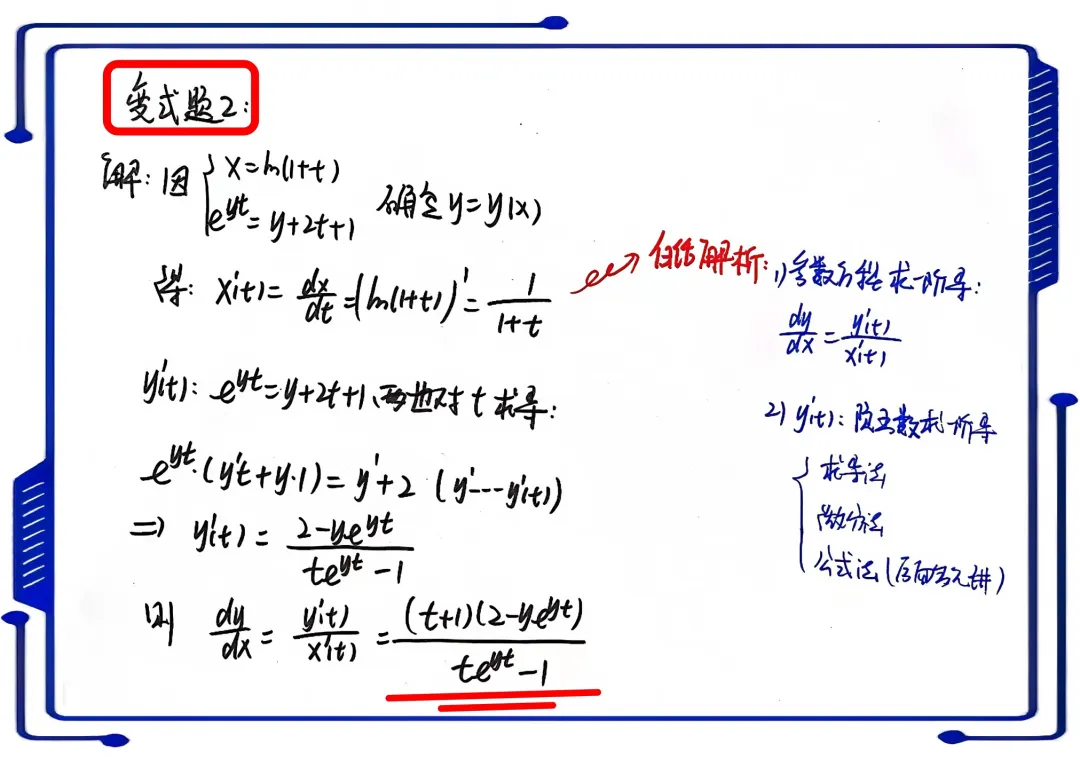 变式题2:
解: 因 { x=ln(1+t)
e^{yt}=y+2t+1 确定 y=y(x)
得: x'(t)=dx/dt=(ln(1+t))'=1/(1+t)
y'(t): e^{yt}=y+2t+1, 两边对t求导:
e^{yt}·(y't+y·1)=y'+2 (y'---y'(t))
=> y'(t)=(2-ye^{yt})/(te^{yt}-1)
则 dy/dx=y'(t)/x'(t)=(t+1)(2-ye^{yt})/(te^{yt}-1)
总结解析:
1)参数方程求一阶导:
dy/dx=y'(t)/x'(t)
2) y'(t): 隐函数求一阶导
{ 求导法
微分法
公式法(后面多元讲)